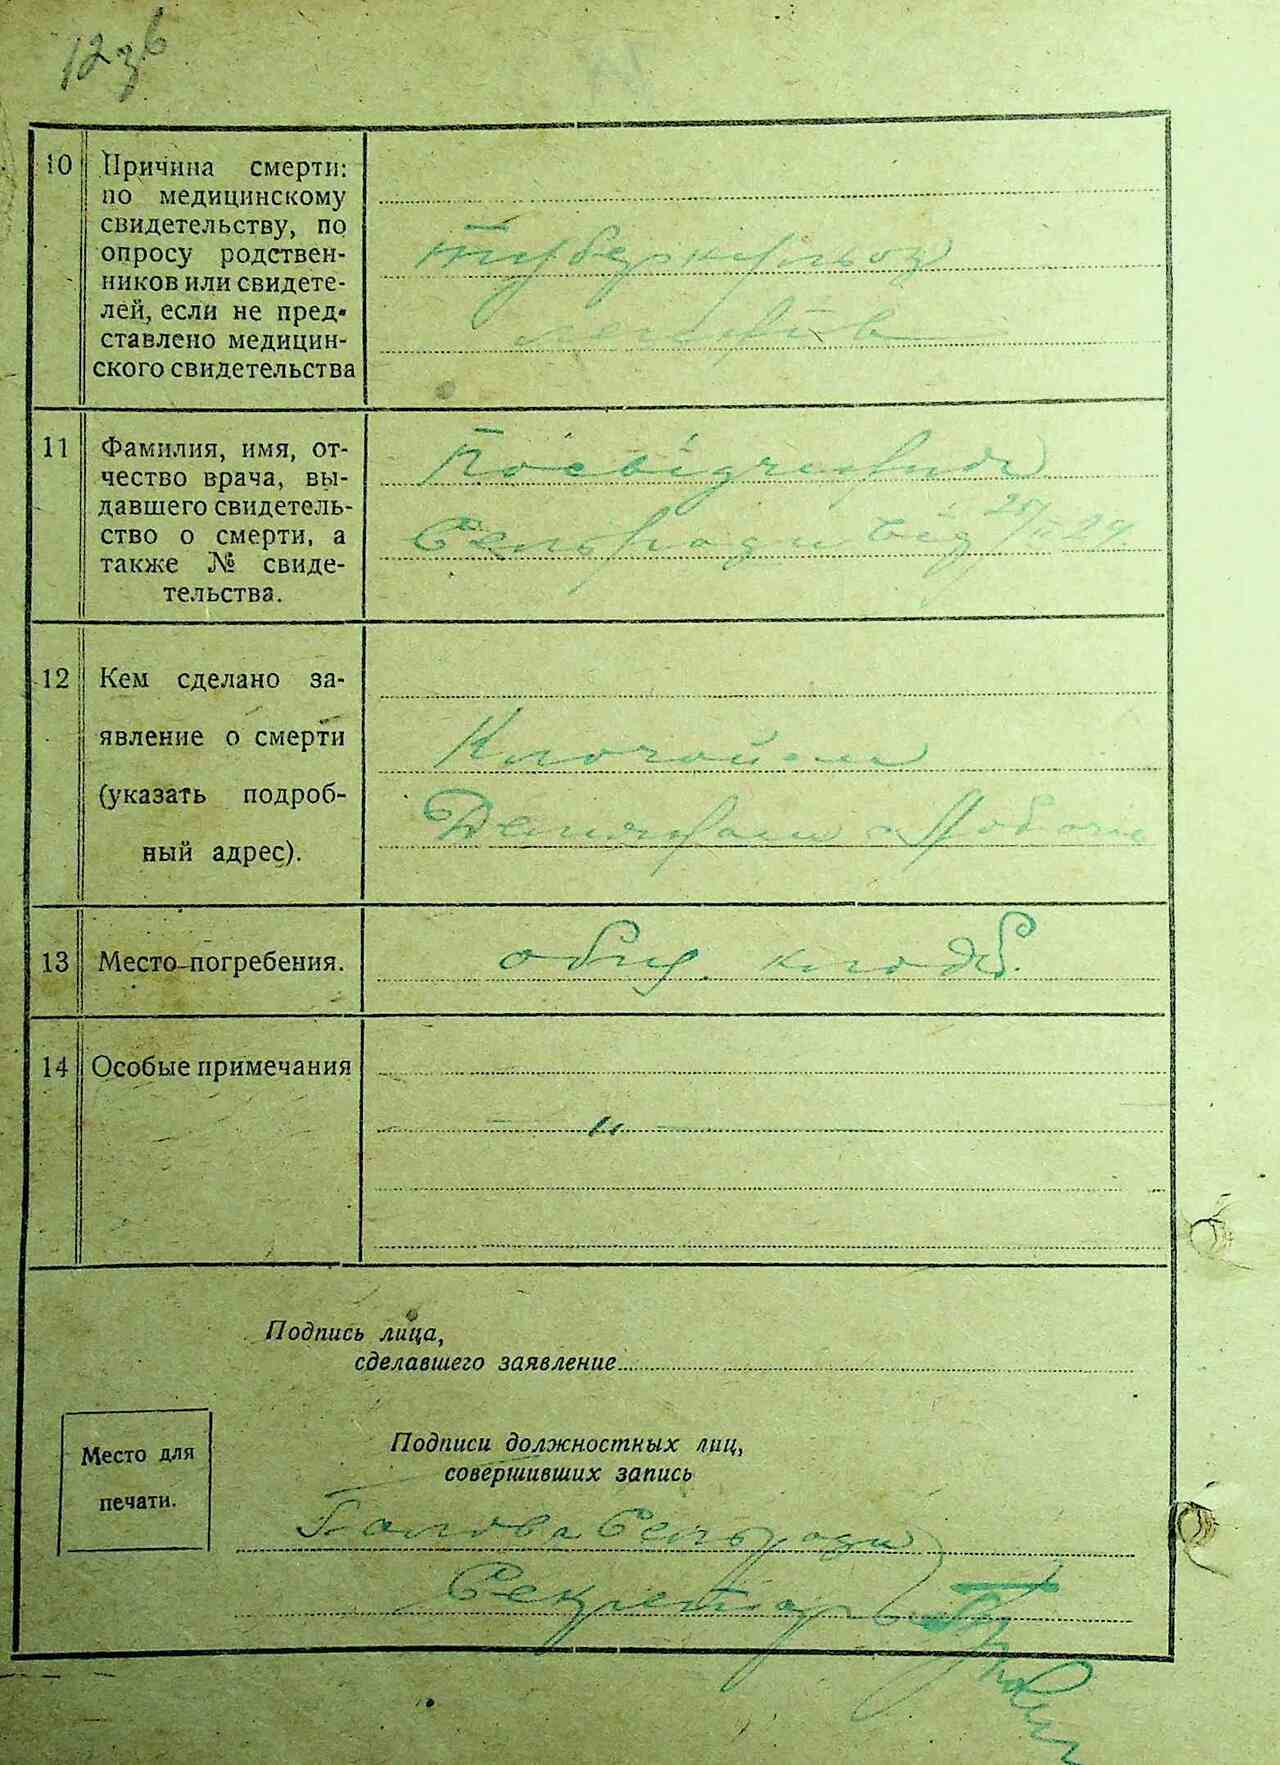 12 зв
10 Причина смерти:
по медицинскому
свидетельству, по
опросу родствен-
ников или свидете-
лей, если не пред-
ставлено медицин-
ского свидетельства
туберкульоз
легенів
11 Фамилия, имя, от-
чество врача, вы-
давшего свидетель-
ство о смерти, а
также № свиде-
тельства.
Посвідчення
Сельради від 25/II 29
12 Кем сделано за-
явление о смерти
(указать подроб-
ный адрес).
13 Место погребения.
общ. кладб.
14 Особые примечания
— " —
Подпись лица,
сделавшего заявление
Место для
печати.
Подписи должностных лиц,
совершивших запись
Голова Сельради
Секретар